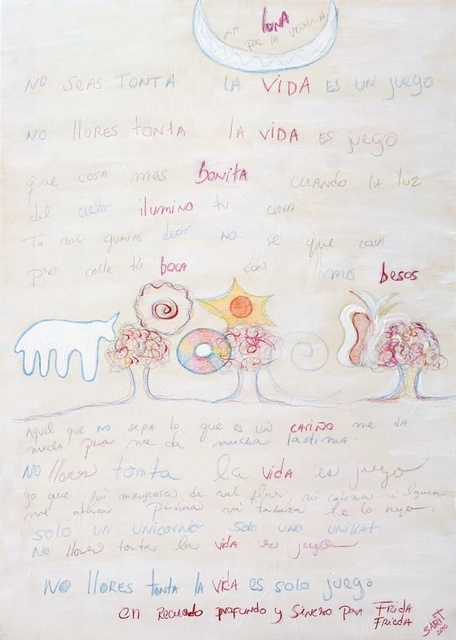 luna
por la ventana
NO SEAS TONTA LA VIDA ES UN JUEGO
NO llores tonta la VIDA ES juego
que cosa mas bonita CUANDO LA LUZ
del cielo ilumino tu cara
Tu me querias decir NO se que cosa
pero calle tu boca con mis besos
Aquel que no sepa lo que es un cariño me da
mucha pena me da mucha lastima
NO llores tonta la vida es juego
yo que fui mariposa de mil flores
solo un unicornio solo uno UNIKAT
NO llores tonta la vida es juego
NO llores tonta la vida es solo juego
en Recuerdo profundo y sincero para FRIDA
FRIEDA
SARIT